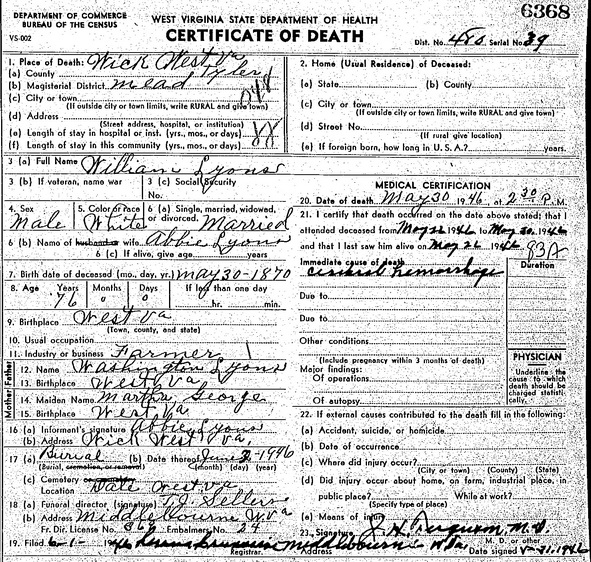 DEPARTMENT OF COMMERCE
BUREAU OF THE CENSUS
VS-002
WEST VIRGINIA STATE DEPARTMENT OF HEALTH
CERTIFICATE OF DEATH
6368
Dist. No. 480 Serial No. 39
1. Place of Death: Wick West Va
(a) County Tyler
(b) Magisterial District Mead
(c) City or town
(If outside city or town limits, write RURAL and give town)
(d) Address
(Street address, hospital, or institution)
(e) Length of stay in hospital or inst. (yrs., mos., or days)
(f) Length of stay in this community (yrs., mos., or days)
2. Home (Usual Residence) of Deceased:
(a) State (b) County
(c) City or town
(If outside city or town limits, write RURAL and give town)
(d) Street No.
(If rural give location)
(e) If foreign born, how long in U. S. A.? years.
3 (a) Full Name William Lyons
3 (b) If veteran, name war 3 (c) Social Security No.
4. Sex Male 5. Color or race White 6 (a) Single, married, widowed, or divorced. Married
6 (b) Name of husband or wife Abbie Lyons
6 (c) If alive, give age years
7. Birth date of deceased (mo., day, yr.) May 30-1870
8. Age Years 76 Months 0 Days 0 If less than one day hr. min.
9. Birthplace West Va
(Town, county, and state)
10. Usual occupation
11. Industry or business Farmer
Mother Father
12. Name Washington Lyons
13. Birthplace West Va
14. Maiden Name Martha George
15. Birthplace West Va
16 (a) Informant's signature Abbie Lyons
(b) Address Wick West Va.
17 (a) Burial (b) Date thereof June 2-1946
(Burial, cremation, or removal) (month) (day) (year)
(c) Cemetery
Location Dale West Va
18 (a) Funeral director (signature) T.J. Sellers
(b) Address Middlebourne W. Va
Fr. Dir. License No. 360 Embalmers No. 24
19. Filed 6-1- 1946
Registrar.
MEDICAL CERTIFICATION
20. Date of death May 30 1946, at 2 30 P. M.
21. I certify that death occurred on the date above stated; that I
attended deceased from May 26 1946 to May 30, 1946
and that I last saw him alive on May 26 1946 83A
Immediate cause of death Duration
cerebral hemorrhage
Due to
Due to
Other conditions
(Include pregnancy within 3 months of death)
Major findings:
Of operations
Of autopsy
PHYSICIAN
Underline the cause to which death should be charged statistically.
22. If external causes contributed to the death fill in the following:
(a) Accident, suicide, or homicide
(b) Date of occurrence
(c) Where did injury occur?
(City or town) (County) (State)
(d) Did injury occur about home, on farm, industrial place, in
public place? While at work?
(Specify type of place)
(e) Means of injury
23. Signature M. D.
M. D. or other
Address Middlebourne W Va Date signed V-31-1946